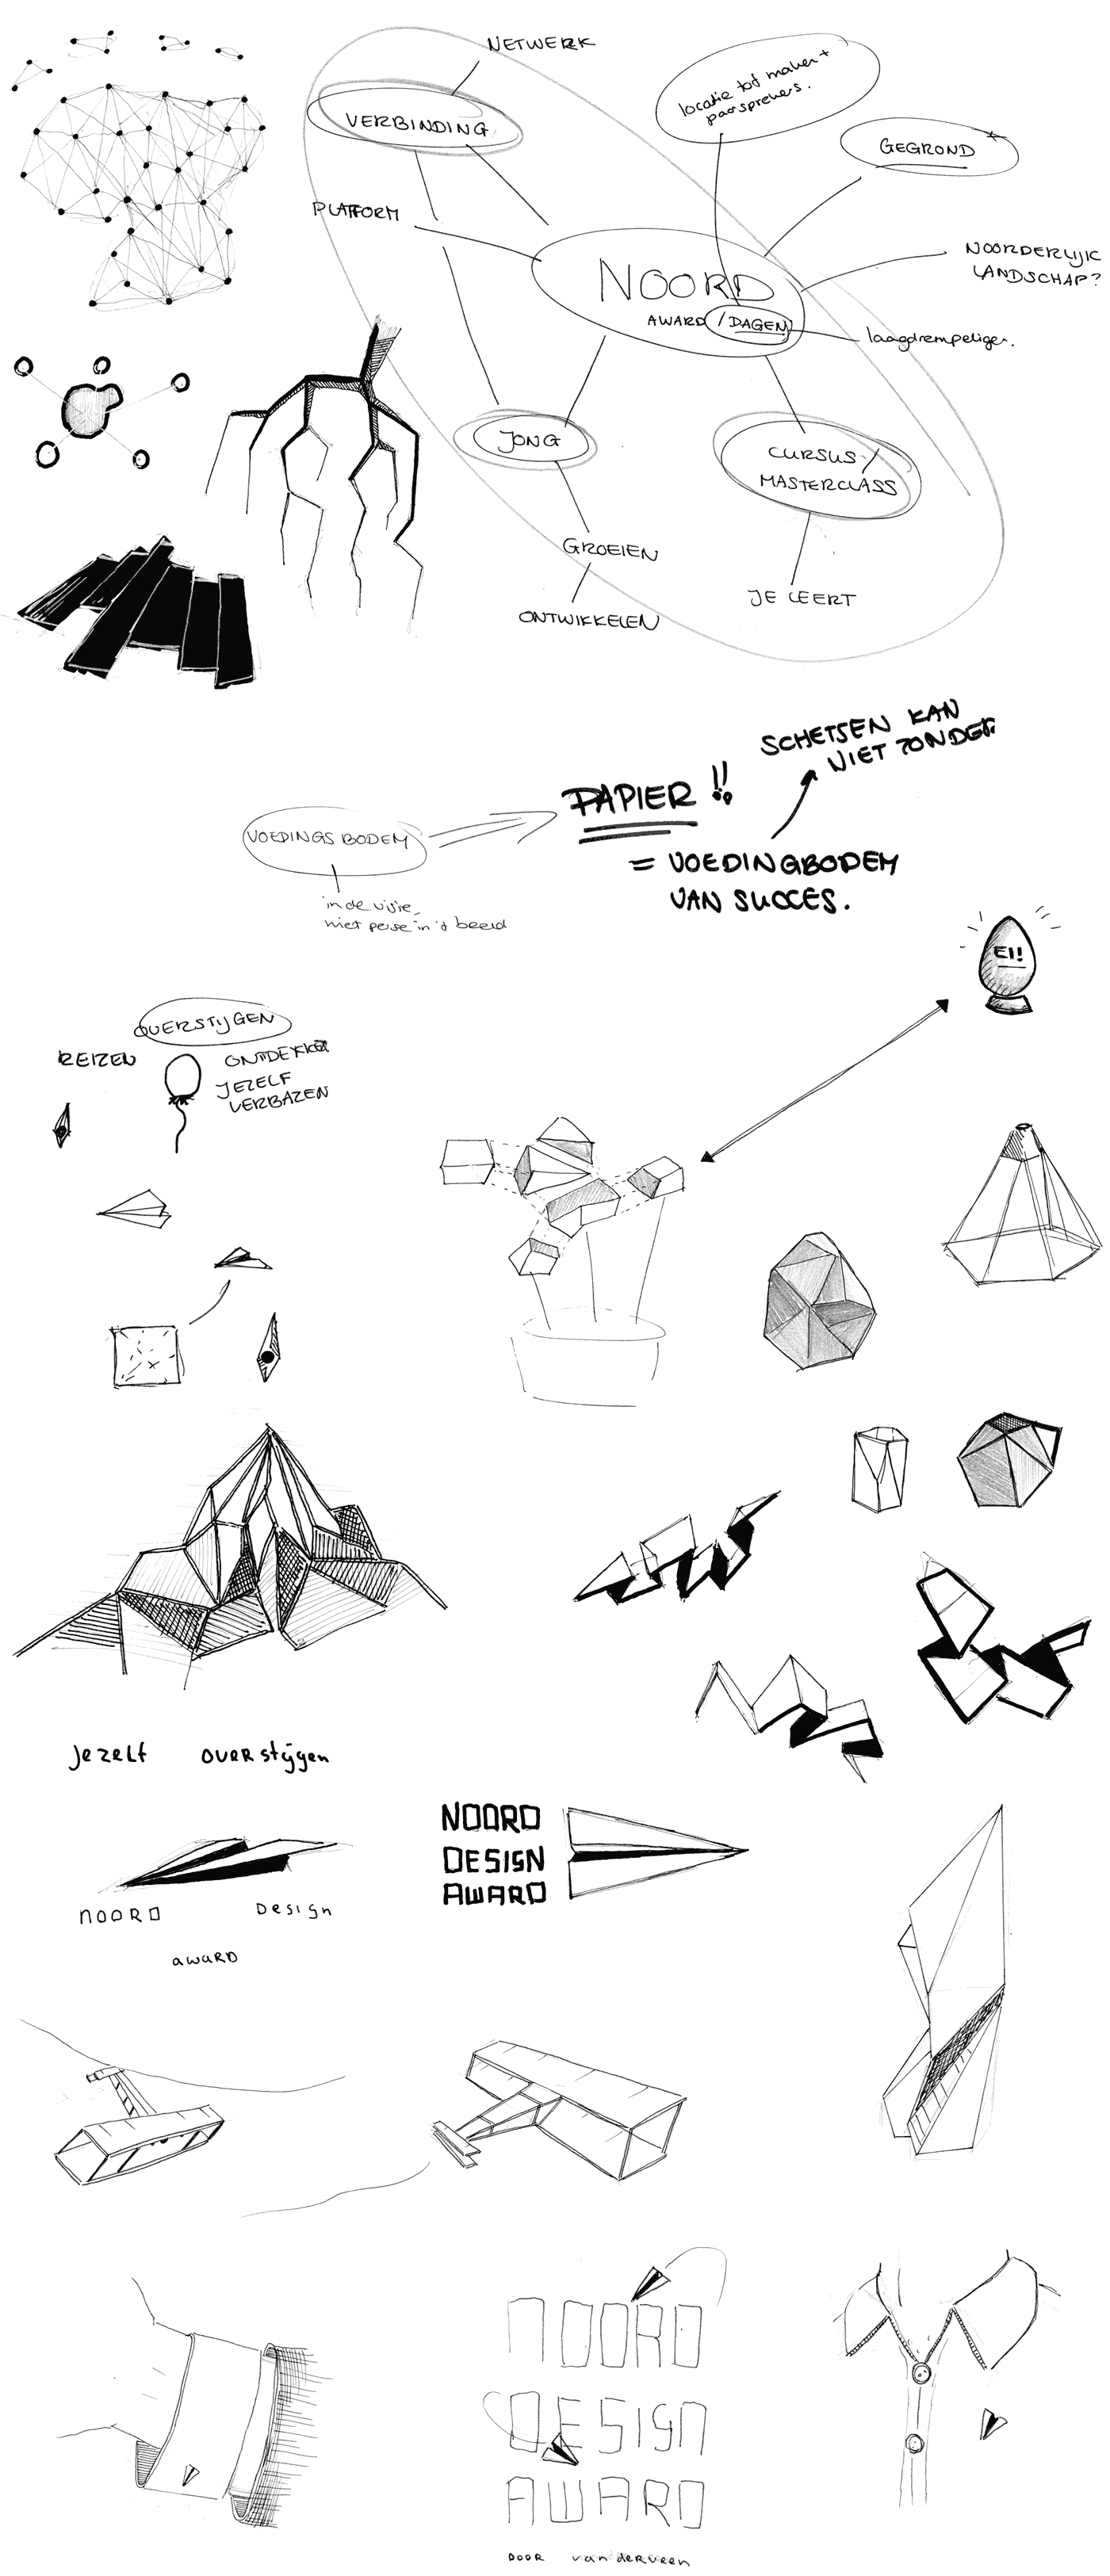 NETWERK
VERBINDING
locatie tot maken +
GEGROND
PLATFORM
NOORD
AWARD / DAGEN
NOORDERLIJK
LANDSCHAP?
laagdrempeliger.
JONG
CURSUS /
MASTERCLASS
GROEIEN
ONTWIKKELEN
JE LEERT
SCHETSEN KAN
NIET ZONDER
PAPIER !!
VOEDINGSBODEM
= VOEDINGBODEM
VAN SUCCES.
in de visie,
niet perse in 't beeld
EI!
OVERSTIJGEN
REIZEN
ONTDEKKEN
JEZELF
VERBAZEN
Jezelf overstijgen
NOORD
DESIGN
AWARD
NOORD Design
aWARD
NOORD
DESIGN
AWARD
DOOR vanderveen